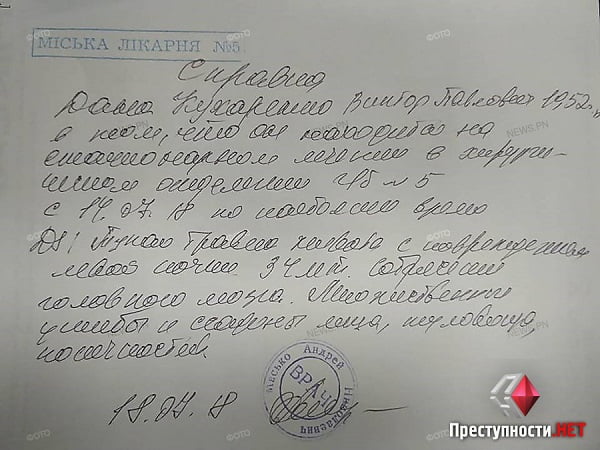 МІСЬКА ЛІКАРНЯ №5
Справка
Дана Кухаренко Виктор Павлович 1952г.
в том, что он находится на
стационарном лечении в хирурги-
ческом отделении ГБ №5
с 14.07.18 по настоящее время
DS: Тупая травма живота с повреждением
левой почки. ЗЧМТ. Сотрясение
головного мозга. Множественные
ушибы и ссадины лица, туловища,
конечностей.
18.07.18
Андрей
Николаевич
ВРАЧ
NEWS.PN
ФОТО
Преступности.НЕТ